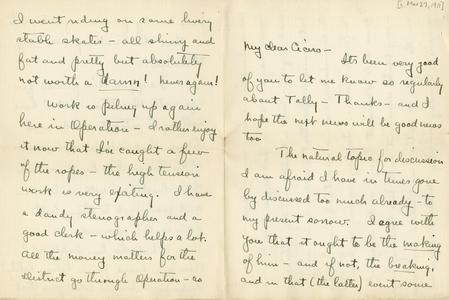 [c. Mar 27, 1915]
My dear Cicero –
Its been very good
of you to let me know so regularly
about Tally – Thanks – and I
hope the next news will be good news
too
The natural topic for discussion
I am afraid I have in times gone
by discussed too much already – to
my present sorrow. I agree with
you that it ought to be the making
of him – and if not, the breaking,
and in that (the latter) event some
I went riding on some livery
stable skates – all shiny and
fat and pretty but absolutely
not worth a damn! never again!
Work is piling up again
here in Operation – I rather enjoy
it now that I've caught a few
of the ropes – the high tension
work is very exciting. I have
a dandy stenographer and a
good clerk – which helps a lot.
All the money matters for the
District go through Operation – so